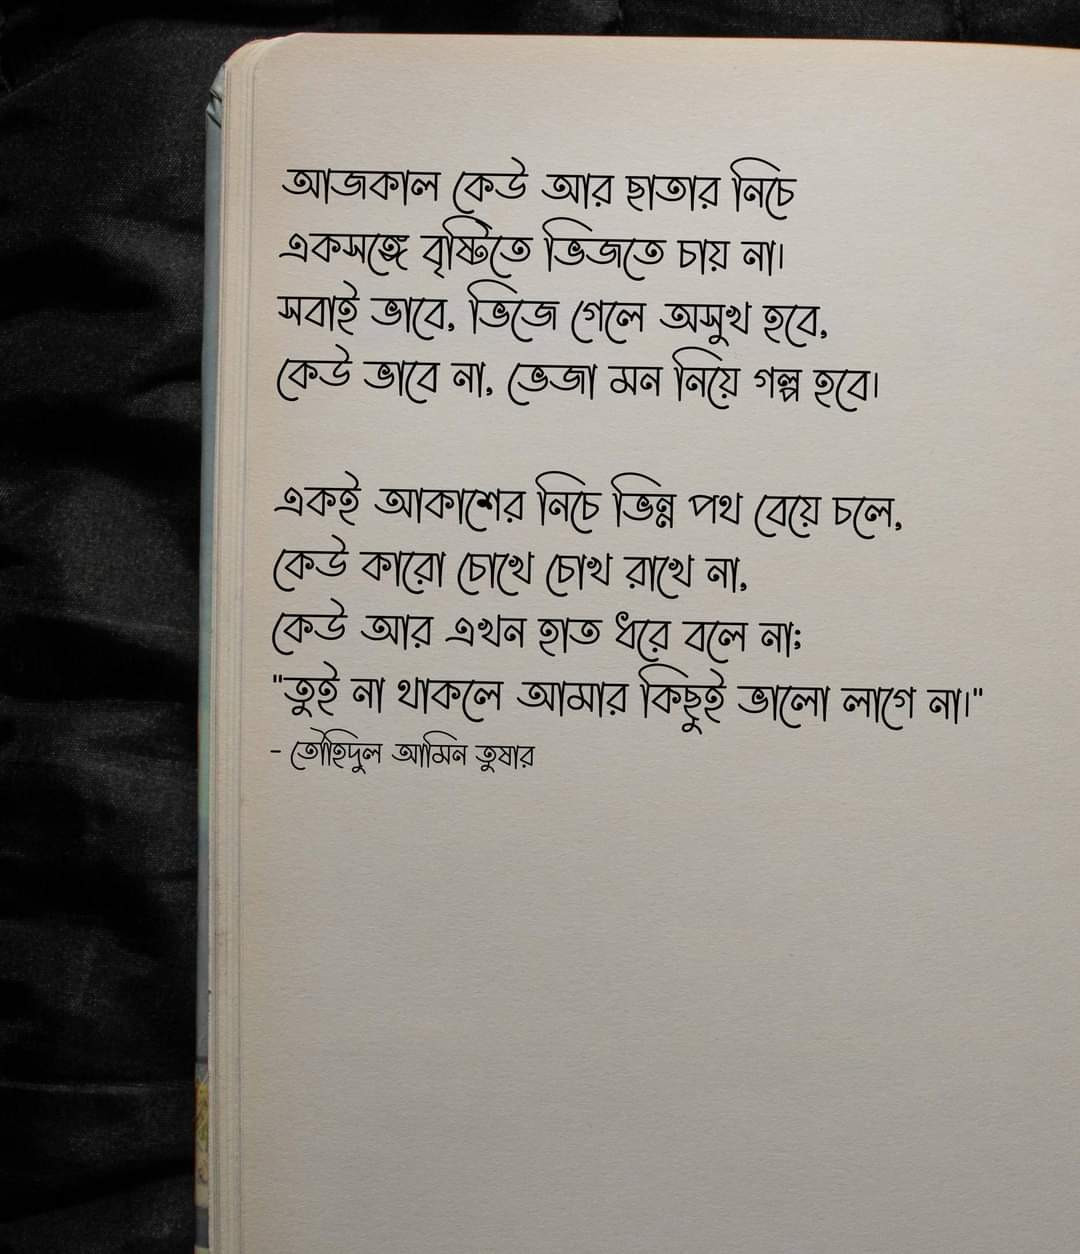 আজকাল কেউ আর ছাতার নিচে
একসঙ্গে বৃষ্টিতে ভিজতে চায় না।
সবাই ভাবে, ভিজে গেলে অসুখ হবে,
কেউ ভাবে না, ভেজা মন নিয়ে গল্প হবে।
একই আকাশের নিচে ভিন্ন পথ বেয়ে চলে,
কেউ কারো চোখে চোখ রাখে না,
কেউ আর এখন হাত ধরে বলে না;
"তুই না থাকলে আমার কিছুই ভালো লাগে না।"
- তৌহিদুল আমিন তুষার